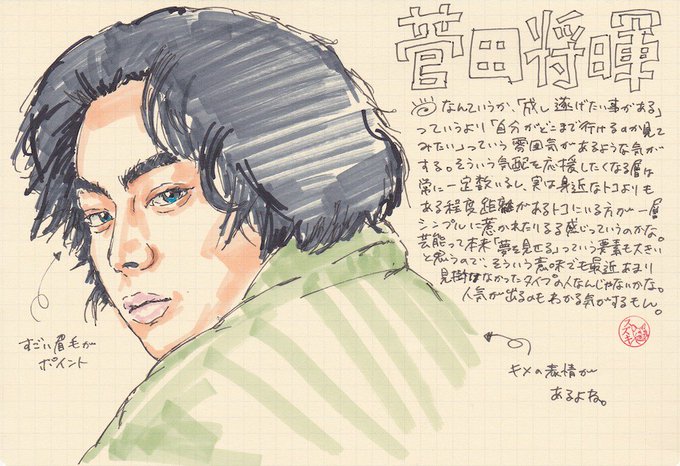 菅田将暉
なんていうか、「成し遂げたい事がある」
っていうより「自分がどこまで行けるのか見て
みたい」っていう雰囲気があるような気が
する。そういう気配を応援したくなる層は
常に一定数いるし、実は身近なトコよりも
ある程度距離があるトコにいる方が一層
シンプルに惹かれたりする感じっていうのかな。
芸能って本来「夢を見せる」っていう要素も大きい
と思うので、そういう意味でも最近あまり
見掛けなかったタイプの人なんじゃないかな。
人気が出るのもわかる気がするもん。
すごい眉毛が
ポイント
キメの表情が
あるよね。